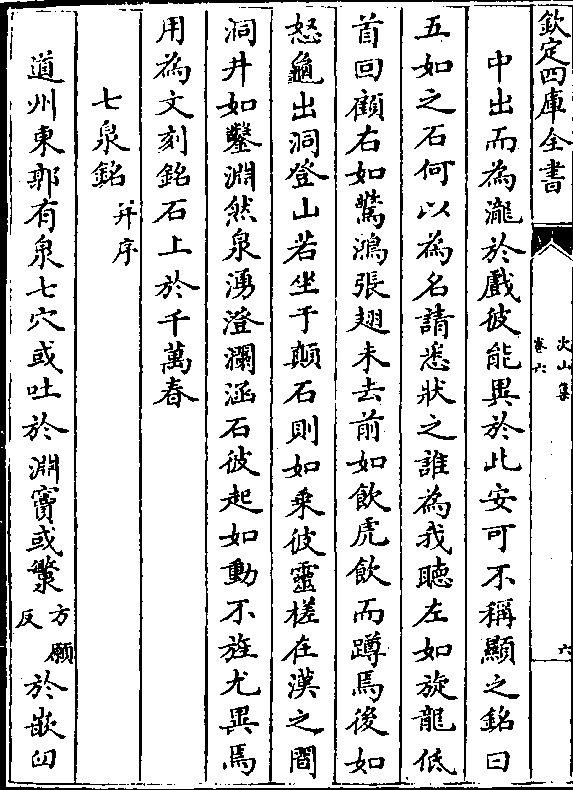 欽定四庫全書
次山集
卷六
六
中出而為瀧於戲彼能異於此安可不稱顯之銘曰
五如之石何以為名請悉狀之誰為我聽左如旋龍低
首回顧右如驚鴻張翅未去前如飲虎飲而蹲焉後如
怒龜出洞登山若坐于顛石則如乘彼靈槎在漢之間
洞井如鑿淵然泉湧澄瀾涵石彼起如動不旌尤異焉
用為文刻銘石上於千萬春
七泉銘并序
道州東郭有泉七穴或吐於淵竇或繁方願反於嵌臼